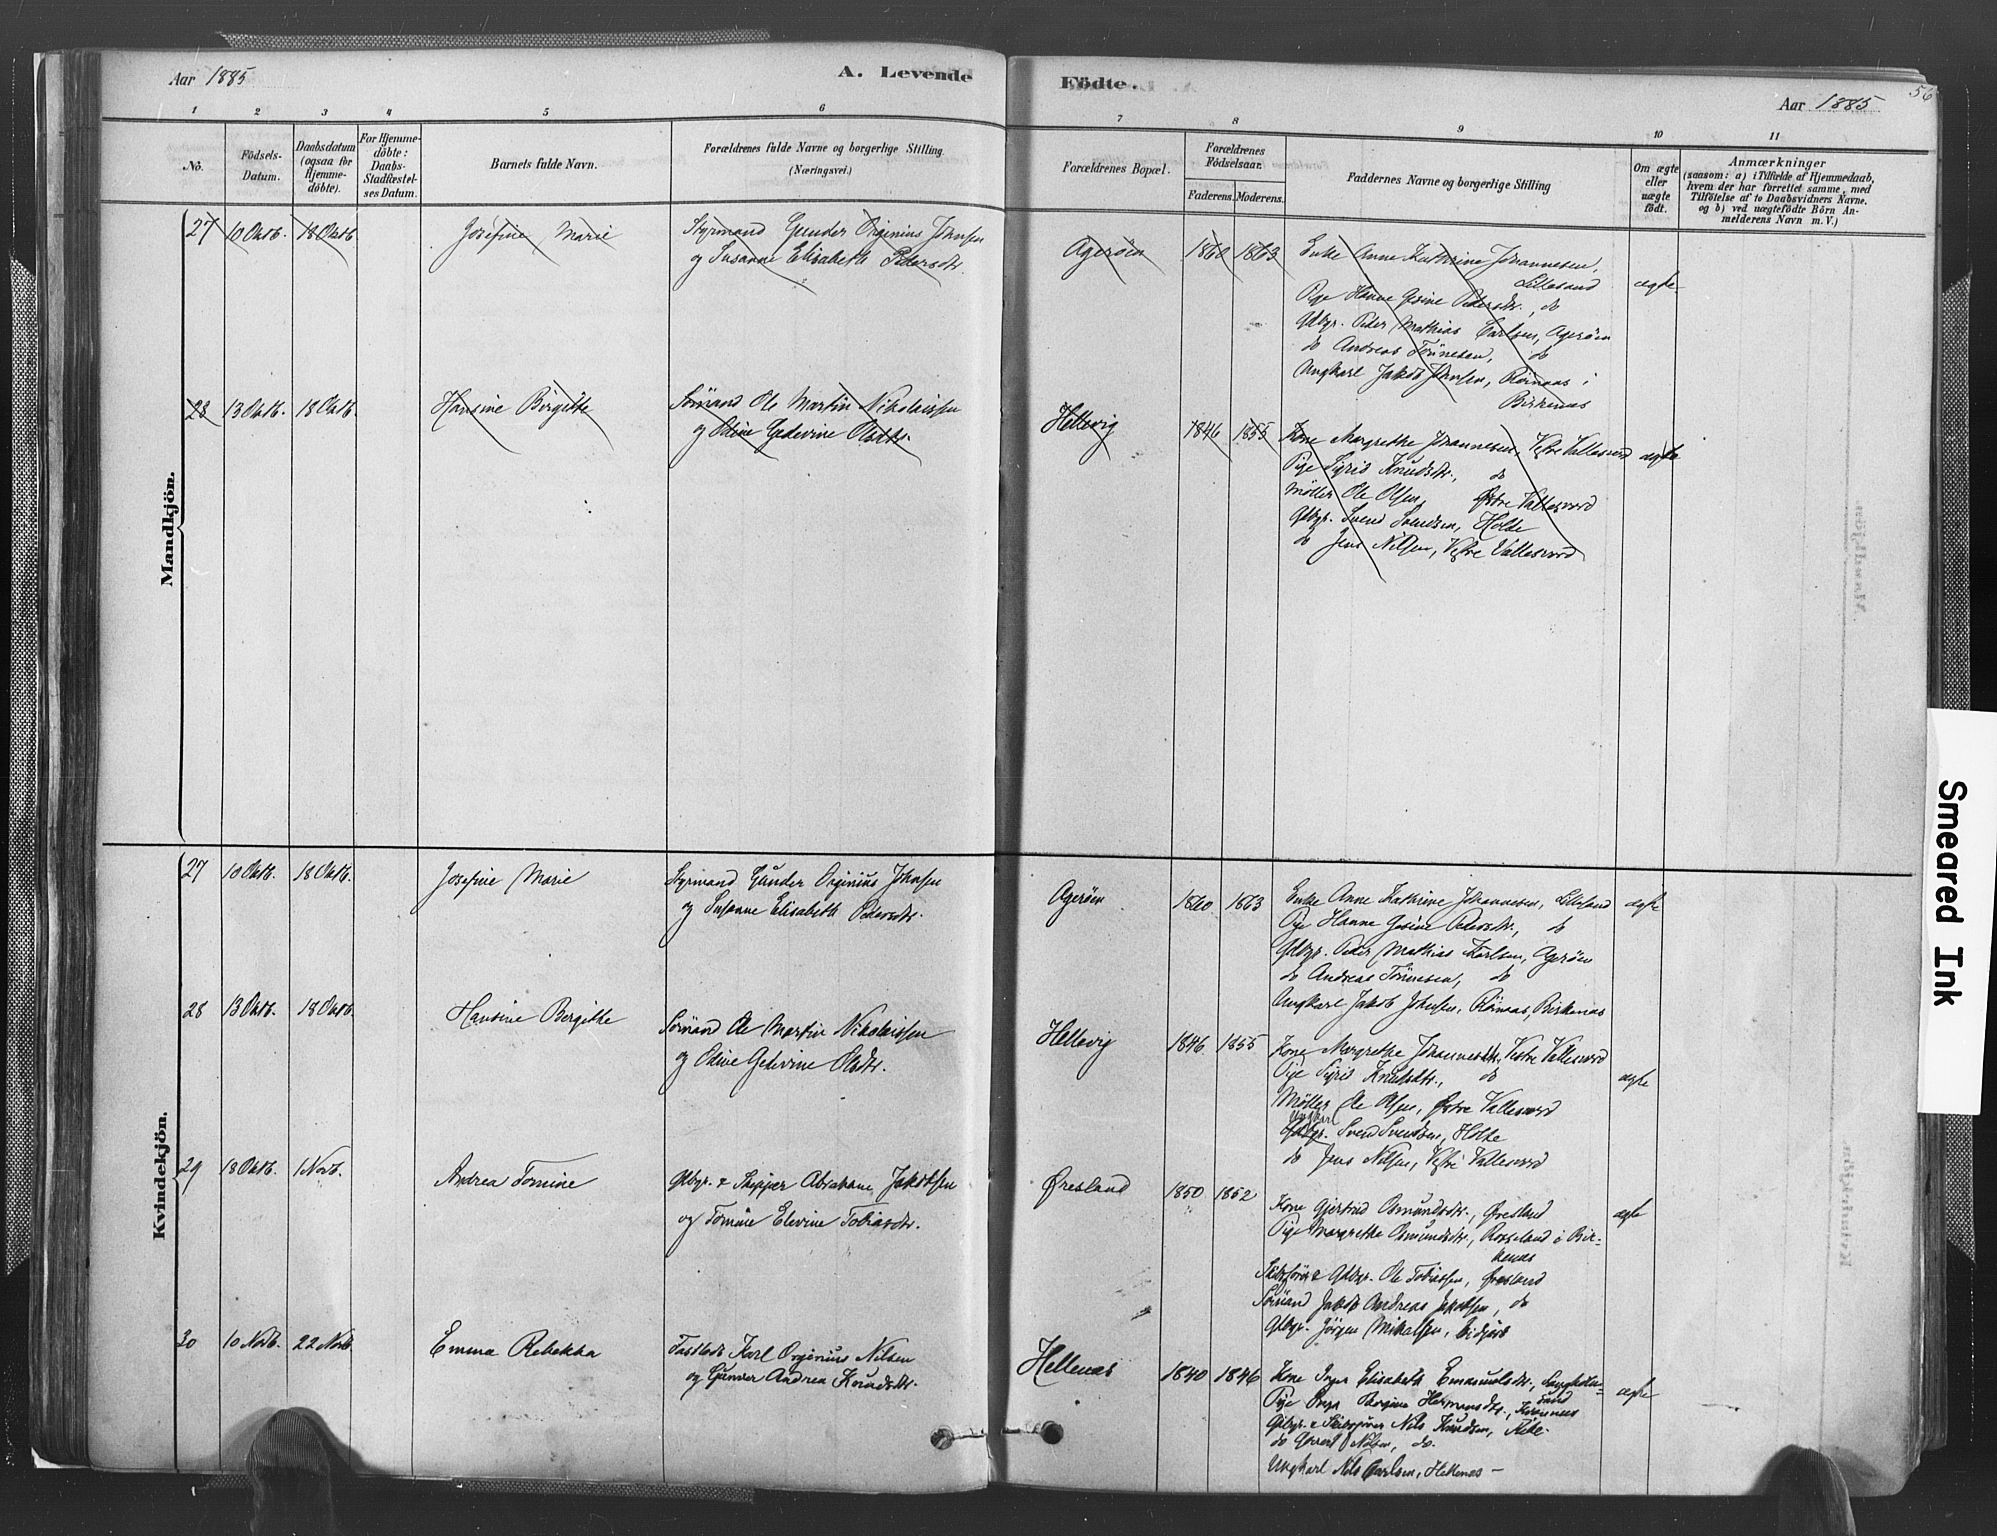 Aar 1885
A. Levende
Födte.
Aar 1885
56
1 2 3 4 5 6 7 8 9 10 11
No.
Födsels-
Datum.
Daabsdatum
(ogsaa for
Hjemme-
döbte).
For Hjemme-
döbte:
Daabs-
Stadfæstel-
ses Datum.
Barnets fulde Navn.
Forældrenes fulde Navne og borgerlige Stilling
(Næringsvei.)
Forældrenes Bopæl.
Forældrenes
Födselsaar.
Faderens. Moderens.
Faddernes Navne og borgerlige Stilling
Om ægte
eller
uægte
födt.
Anmærkninger
(saasom: a) i Tilfælde af Hjemmedaab,
hvem der har forrettet samme, med
Tilföielse af to Daabsvidners Navne,
og b) ved uægtefödte Börn An-
melderens Navn m. V.)
Mandkjön.
27 10 Oktb. 18 Oktb Josefine Marie
Styrmand Gunder Orginius Johnsen
og Susanne Elisabeth Pedersdtr.
Agerøen 1860 1863
Enke Anne Kathrine Johannesen,
Lillesand
ægte
Pige Hanne Gesine Pedersdtr., do
Gdbgr. Peder Mathias Carlsen, Agerøen
do Andreas Tønnesen, do
Ungkarl Jakob Johnsen, Rörnaas i
Birkenæs
28 13 Oktb. 18 Oktb. Hansine Birgitte
Sømand Ole Martin Nikolaissen
og Odine Gedevine Olsdtr.
Hellevig 1846 1855
Kone Margrethe Johannesen, Vestre Vallesverd ægte
Pige Sigrid Knudsdtr., do
Møller Ole Olsen, Østre Vallesverd
Gdbgr. Svend Svendsen, Holte
do Jens Nilsen, Vestre Vallesverd
Kvindekjön.
27 10 Oktb. 18 Oktb. Josefine Marie
Styrmand Gunder Orginius Johnsen
og Susanne Elisabeth Pedersdtr.
Agerøen 1860 1863
Enke Anne Kathrine Johannesen, Lillesand ægte
Pige Hanne Gesine Pedersdtr., do
Gdbgr. Peder Mathias Karlsen, Agerøen
do Andreas Tønnesen, do
Ungkarl Jakob Johnsen, Rörnaas, Birkenæs
28 13 Oktb. 18 Oktb. Hansine Bergitte
Sømand Ole Martin Nikolaissen
og Odine Gedevine Olsdtr.
Hellevig 1846 1855
Kone Margrethe Johannesdtr., Vestre Vallesverd
Pige Sigrid Knudsdtr., do
ægte
Møller Ole Olsen, Østre Vallesverd
Ungkarl
Gdbgr. Svend Svendsen, Holte
do Jens Nilsen, Vestre Vallesverd
29 18 Oktb. 1 Novb. Andrea Tomine
Gdbgr. & Skipper Abraham Jakobsen
og Tomine Elevine Tobiasdtr.
Øresland 1850 1852
Kone Gjertrud Osmundsdtr., Øresland
ægte
Pige Margrethe Osmundsdtr., Rosseland i Bir-
kenæs
Skibsfører & Gdbgr. Ole Tobiassen, Øresland
Sømand Jakob Andreas Jakobsen, do
Gdbgr. Jørgen Mikalsen,
30 10 Novb. 22 Novb Emma Rebekka
Karl Orginius Nilsen
og Gunder Andrea Knudsdtr.
Hellenæs 1840 1846
Kone Inger Elisabeth Emanuelsdtr.,
sund
ægte
Pige Inga Hermansdtr.,
Gdbgr. & Skibsfører Nils Knudsen,
do Nilsen, do.
Ungkarl Nils Carlsen, Hellenæs –
Smeared Ink